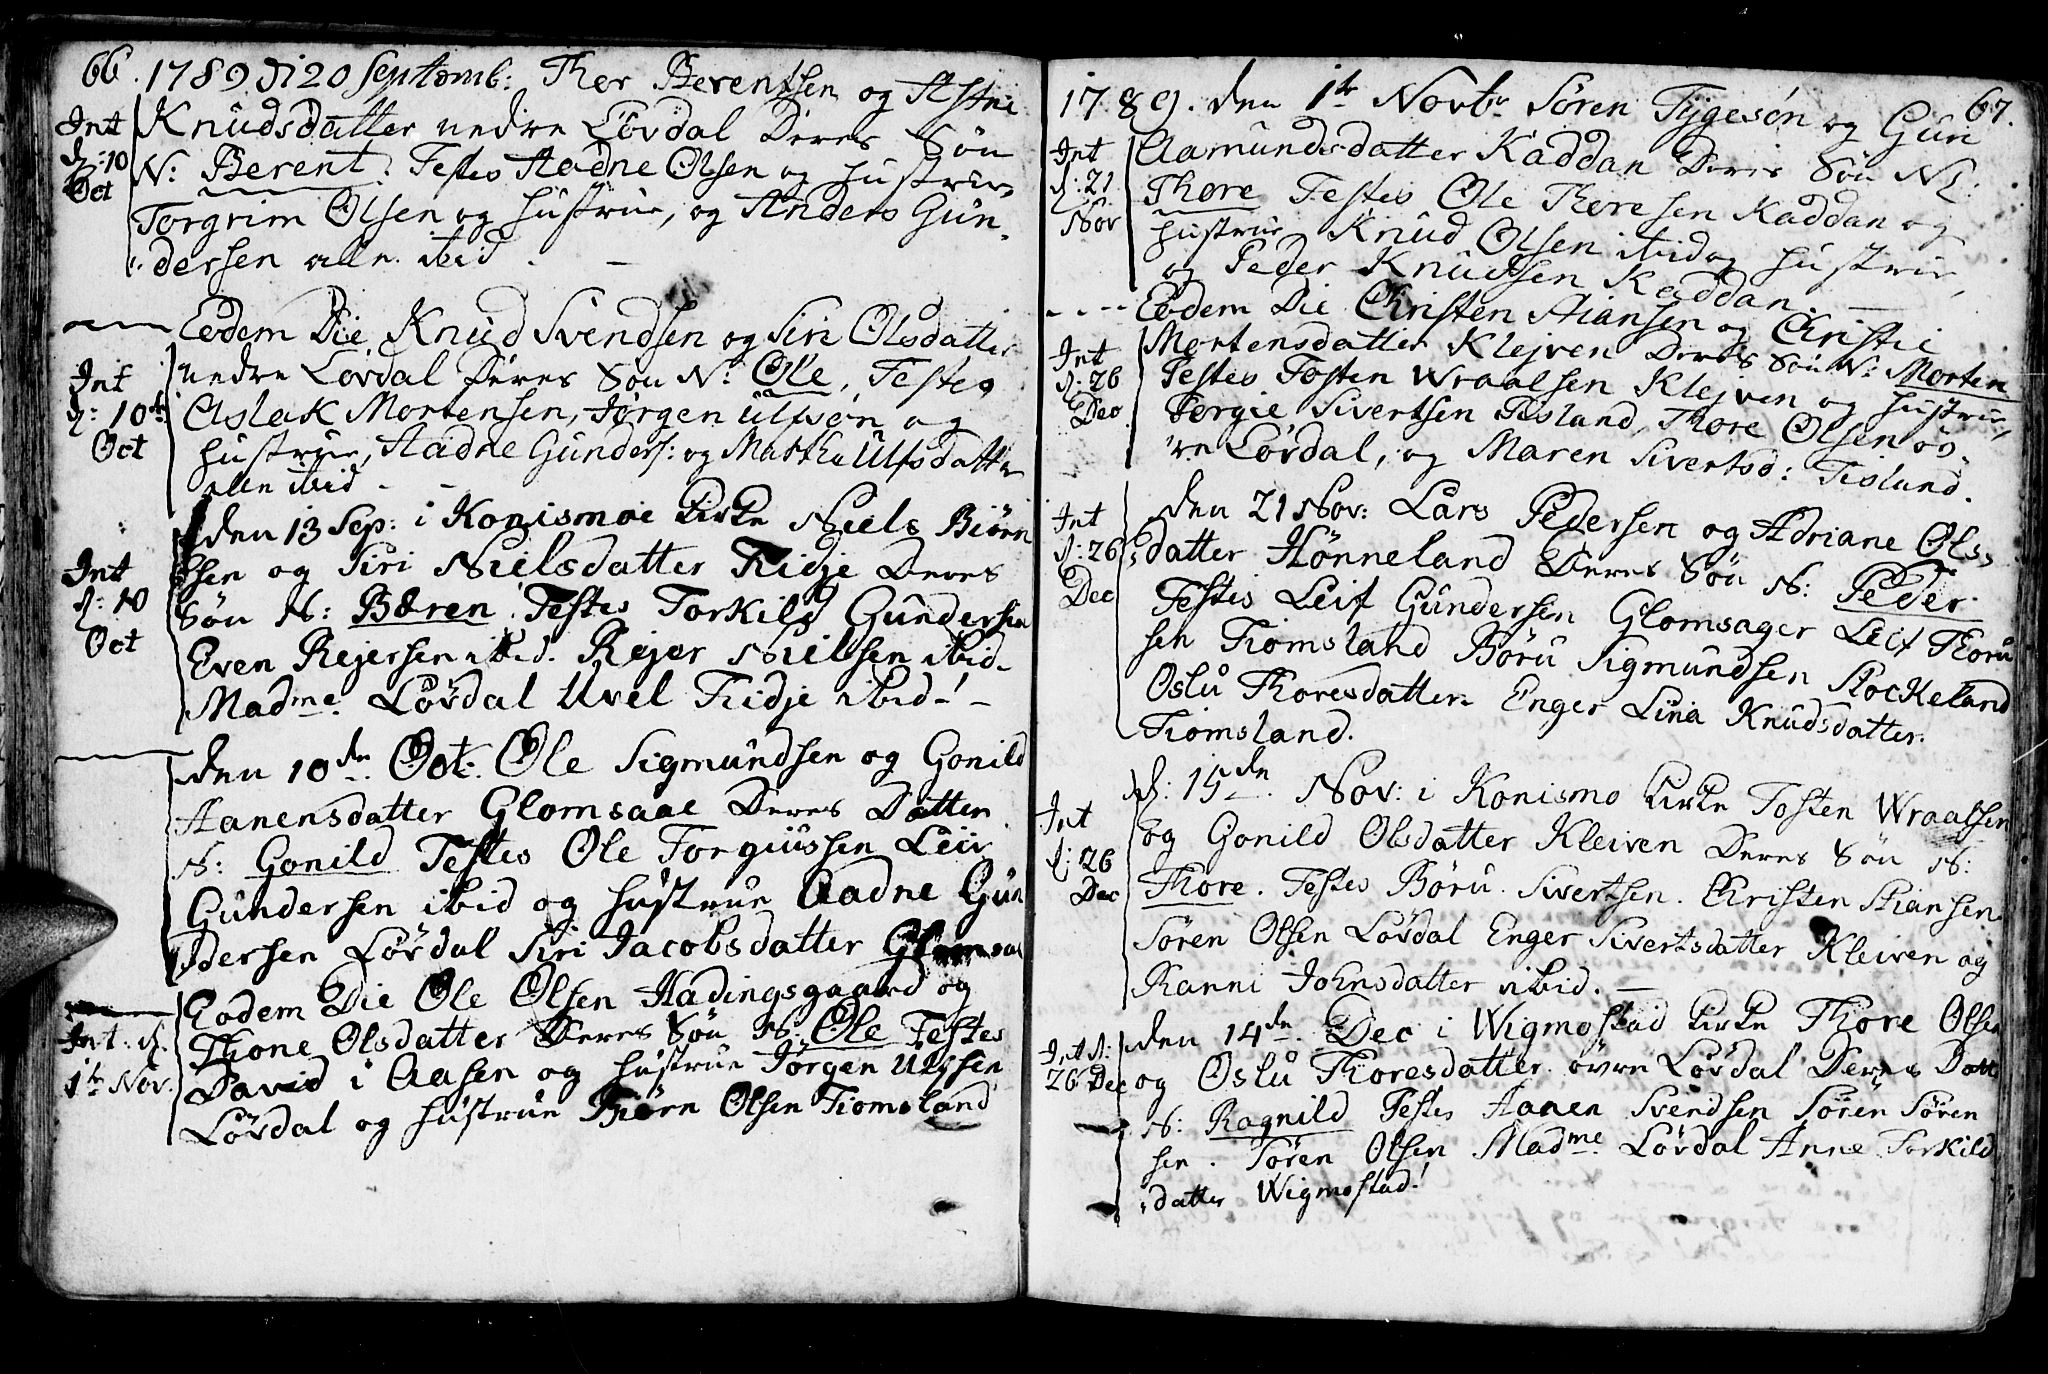 66. 1789 d: 20 Septemb: Thor Berentsen og Astrie
Int Knudsdatter nedre Lövdal Deres Sön
d: 10 N: Berent. Testes Aadne Olsen og hustrue
Oct Torgrim Olsen og hustrue, og Anders Gun
dersen alle. ibid.
Eodem Die Knud Svendsen og Siri Olsdatter
Int nedre Lovdal Deres Sön N: Ole, Testes
d: 10de Aslak Mortensen, Jørgen Ulfsøn og
Oct hustrue, Aadne Gunders: og Martha Ulfsdatter
alle ibid -
den 13 Sep: i Konismoe Kirke Niels Biørn
Int sen og Siri Nielsdatter Fidje Deres
d: 10 Sön N: Bæren. Testes Torkild Gundersen
Oct Even Rejersen ibid. Rejer Nielsen ibid.
Madme. Lövdal Uvel Fidje ibid. -
den 10de Oct. Ole Sigmundsen og Gonild
Aanensdatter Glomsaae Deres Datter
N: Gonild Testes Ole Torgiussen Leir
Gundersen ibid og hustrue Aadne Gun
dersen Lövdal Siri Jacobsdatter
Eodem Die Ole Olsen Hadingsgaard og
Int. d. Thone Olsdatter Deres Sön N: Ole Testes
1te Nov. David i Aasen og hustrue Jørgen Ulfsen
Lövdal og hustrue Biörn Olsen Fiomsland
1789. den 1te Novbr Søren Tygesøn og Gun 67.
Int Aamundsdatter Kaddan Deris Sön N:
d: 21 Thore Testes Ole Thoresen Kaddan og
Nov hustrue Knud Olsen ibid og hustrue,
og Peder Knudsen Kaddan. -
Eodem Die Christen Stiansen og Christie
Int Mortensdatter Klejven Deres Sön N: Morten
d: 26 Testes Tosten Wraalsen Klejven og hustrue,
Dec. Tergie Sivertsen Fisland, Thore Olsen öv,
re Lövdal, og Maren Sivertsd: Fislund.
den 21 Nov: Lars Pedersen og Adriane Ols,
Int
d: 26 datter Hønneland Deres Sön N: Peder.
Dec Testes Leif Gundersen Glomsager Leif Thoru
sen Fiomsland Börü Sigmundsen Stockeland
Oslü Thoresdatter Enger Lina Knudsdatter
Fiomsland.
d: 15de. Nov: i Konismo Kirke Tosten Wraalsen
Int og Gonild Olsdatter Kleiven Deres Sön N:
d: 26 Thore. Testes Börü Sivertsen. Christen Stiansen
Dec Sören Olsen Lövdal Enger Sivertsdatter Kleiven og
Ranni Johnsdatter ibid. -
den 14de. Dec i Wigmostad Kirke Thore Olsen
Int d: 26 Dec og Oslü Thoresdatter övre Lövdal Deres Datt
N: Ragnild Testes Aanen Svendsen Sören Sören
sen. Sören Olsen Madme. Lövdal Anne Torkild
datter Wigmostad.